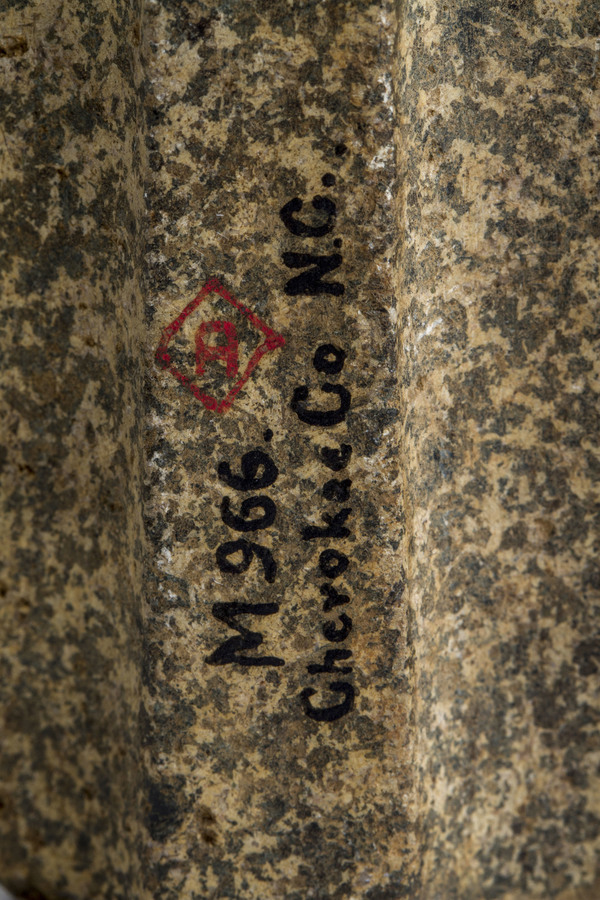 M 966. A
Cherokee Co N.C..